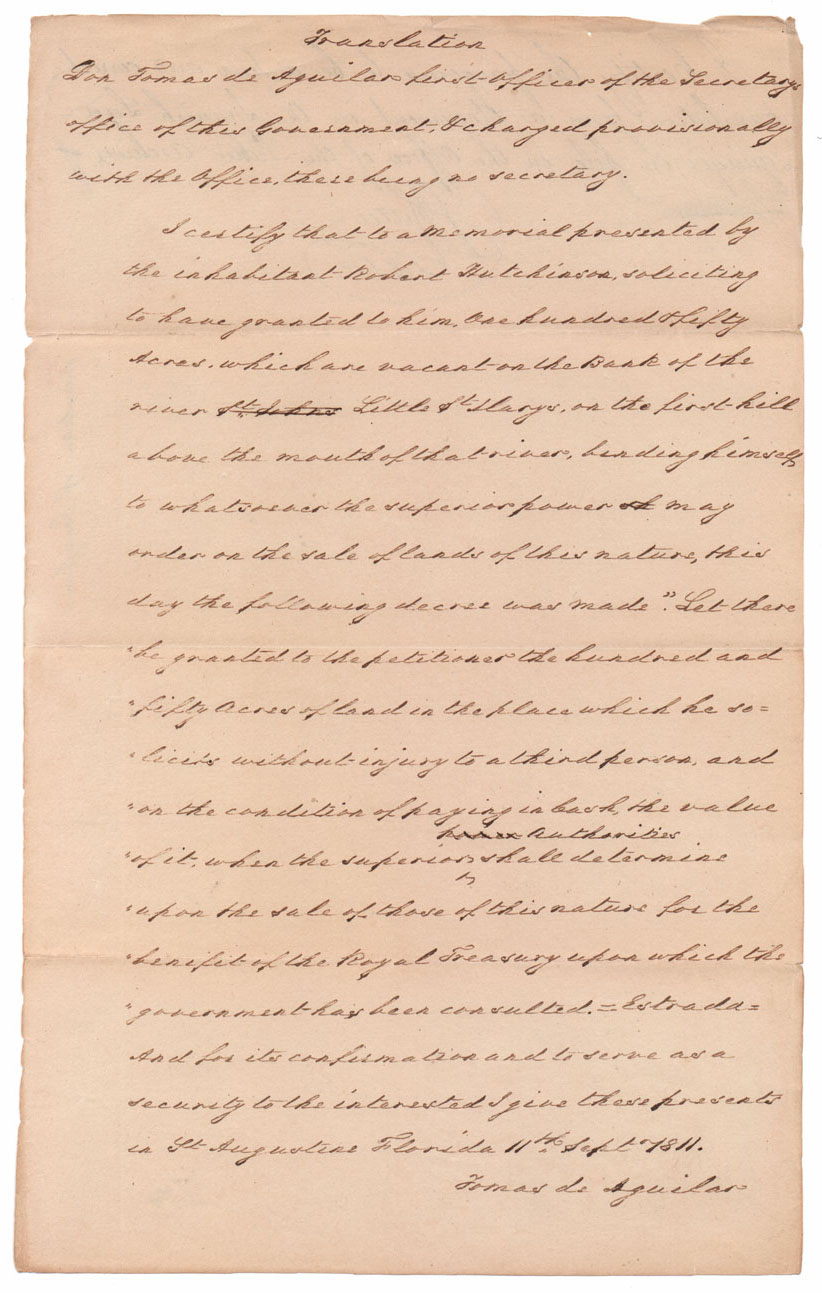 Translation
Don Tomas de Aguilar first Officer of the Secretarys
office of this Government, & charged provisionally
with the Office, there being no secretary.
I certify that to a Memorial presented by
the inhabitant Robert Hutchinson, soliciting
to have granted to him, One hundred & fifty
Acres, which are vacant on the Bank of the
river St. Johns Little St Marys, on the first hill
above the mouth of that river, binding himself
to whatsoever the superior power sh may
order on the sale of lands of this nature, this
day the following decree was made ". Let there
"be granted to the petitioner the hundred and
"fifty Acres of land in the place which he so=
"licits without injury to a third person, and
"on the condition of paying in Cash, the value
Authorities
"of it, when the superior shall determine
"upon the sale of those of this nature for the
"benifit of the Royal Treasury upon which the
"government has been consulted. = Estrada =
And for its confirmation and to serve as a
security to the interested I give these presents
in St Augustine Florida 11th Septr 1811.
Tomas de Aguilar